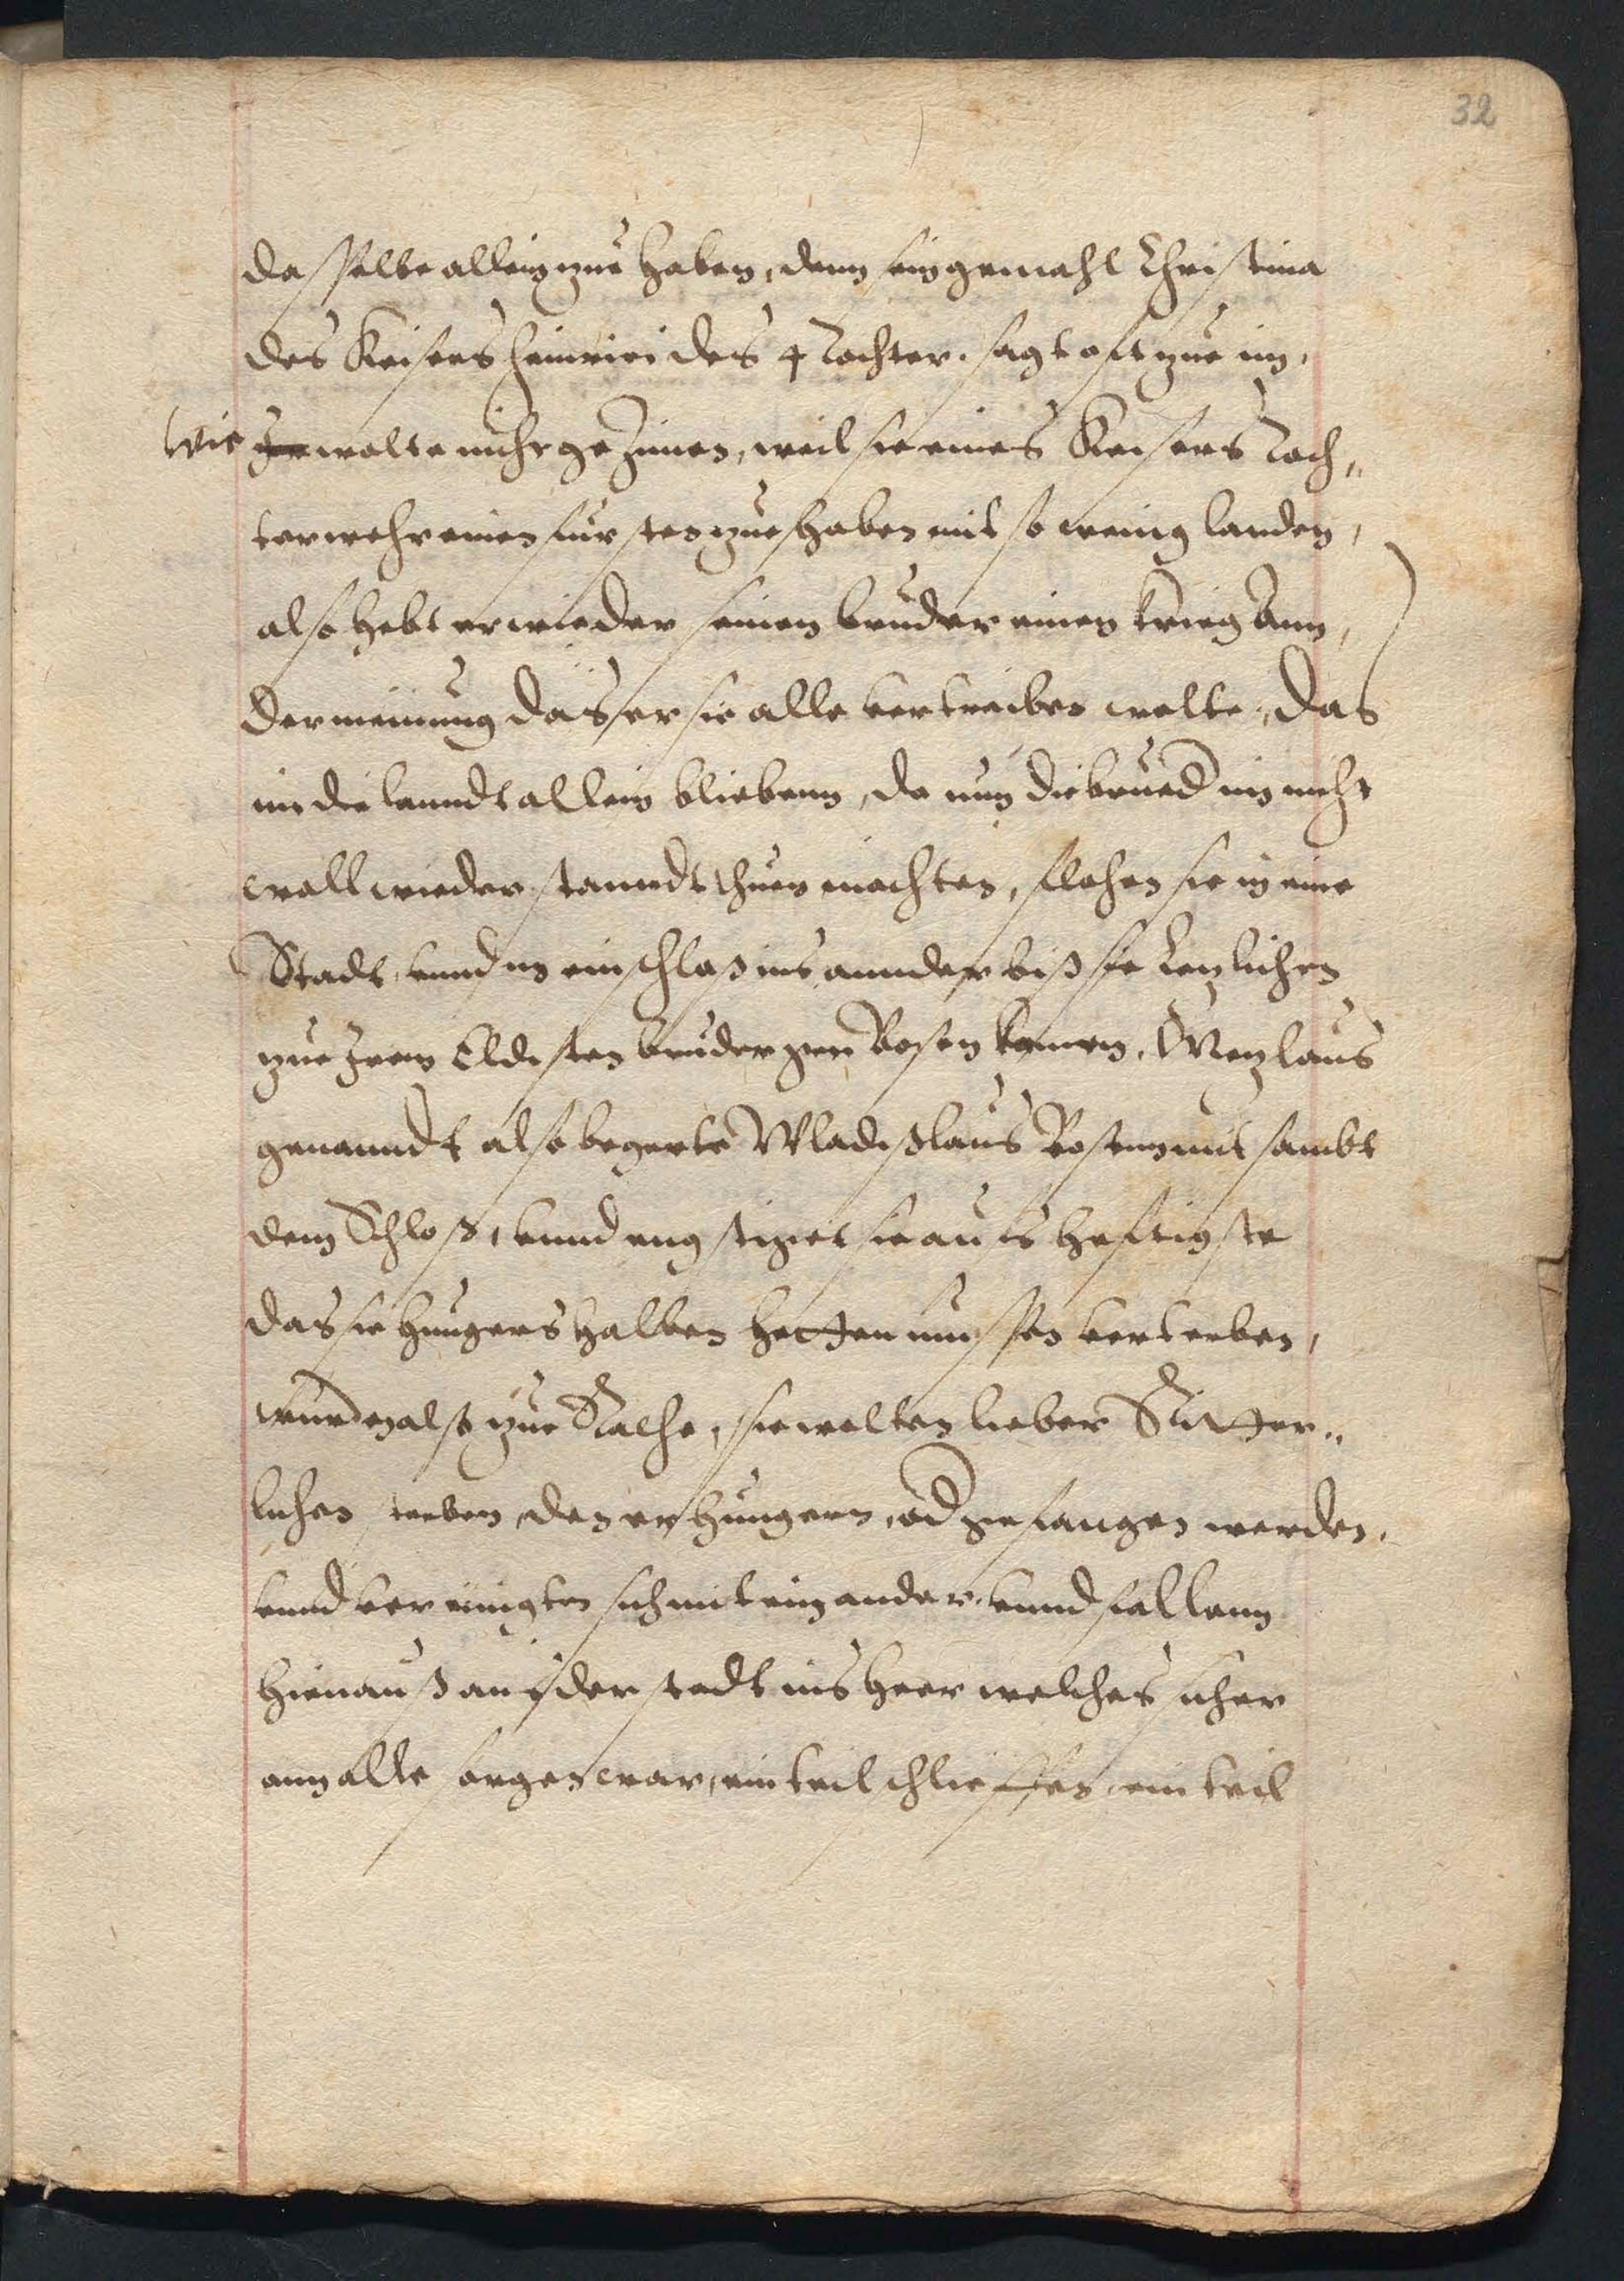 32
dasselbe allein zue haben, denn sein gemahl Christina
des Keisers Heinrici des 4 Tochter. sagt oft zue im,
wie Ir wolte nicht gezimen, weil sie eines Keisers Toch„
ter wehr einen fursten zue haben mit so wenig landen,
also hebt er wieder seinen bruder einen krieg ann,
der meinung das er sie alle vertreiben wolte, das
im die lanndt allein bliebenn, da nun die brued im nicht
woll wiederstanndt thuen mochten, flohen sie in eine
Stadt, vnnd in ein schloß ins annder biß sie lezlichen
zue Irem Eldisten bruder gen Posen kamen, Wenzlaus
genanndt also begerte Wladißlaus Posenn mit sambt
dem Schloß, vnnd engstiget sie aufs heftigste
das sie hungers halben hetten mussen verterben,
wurden also zue Rathe, sie wolten lieber Ritter„
lichen sterben, den erhungern, od gefangen werden,
vnnd vereinigten sich mit einander. vnnd fallenn
hienauß auß der stadt ins heer welches sicher
ann alle sorgen war, ein teil schlieffen, ein teil